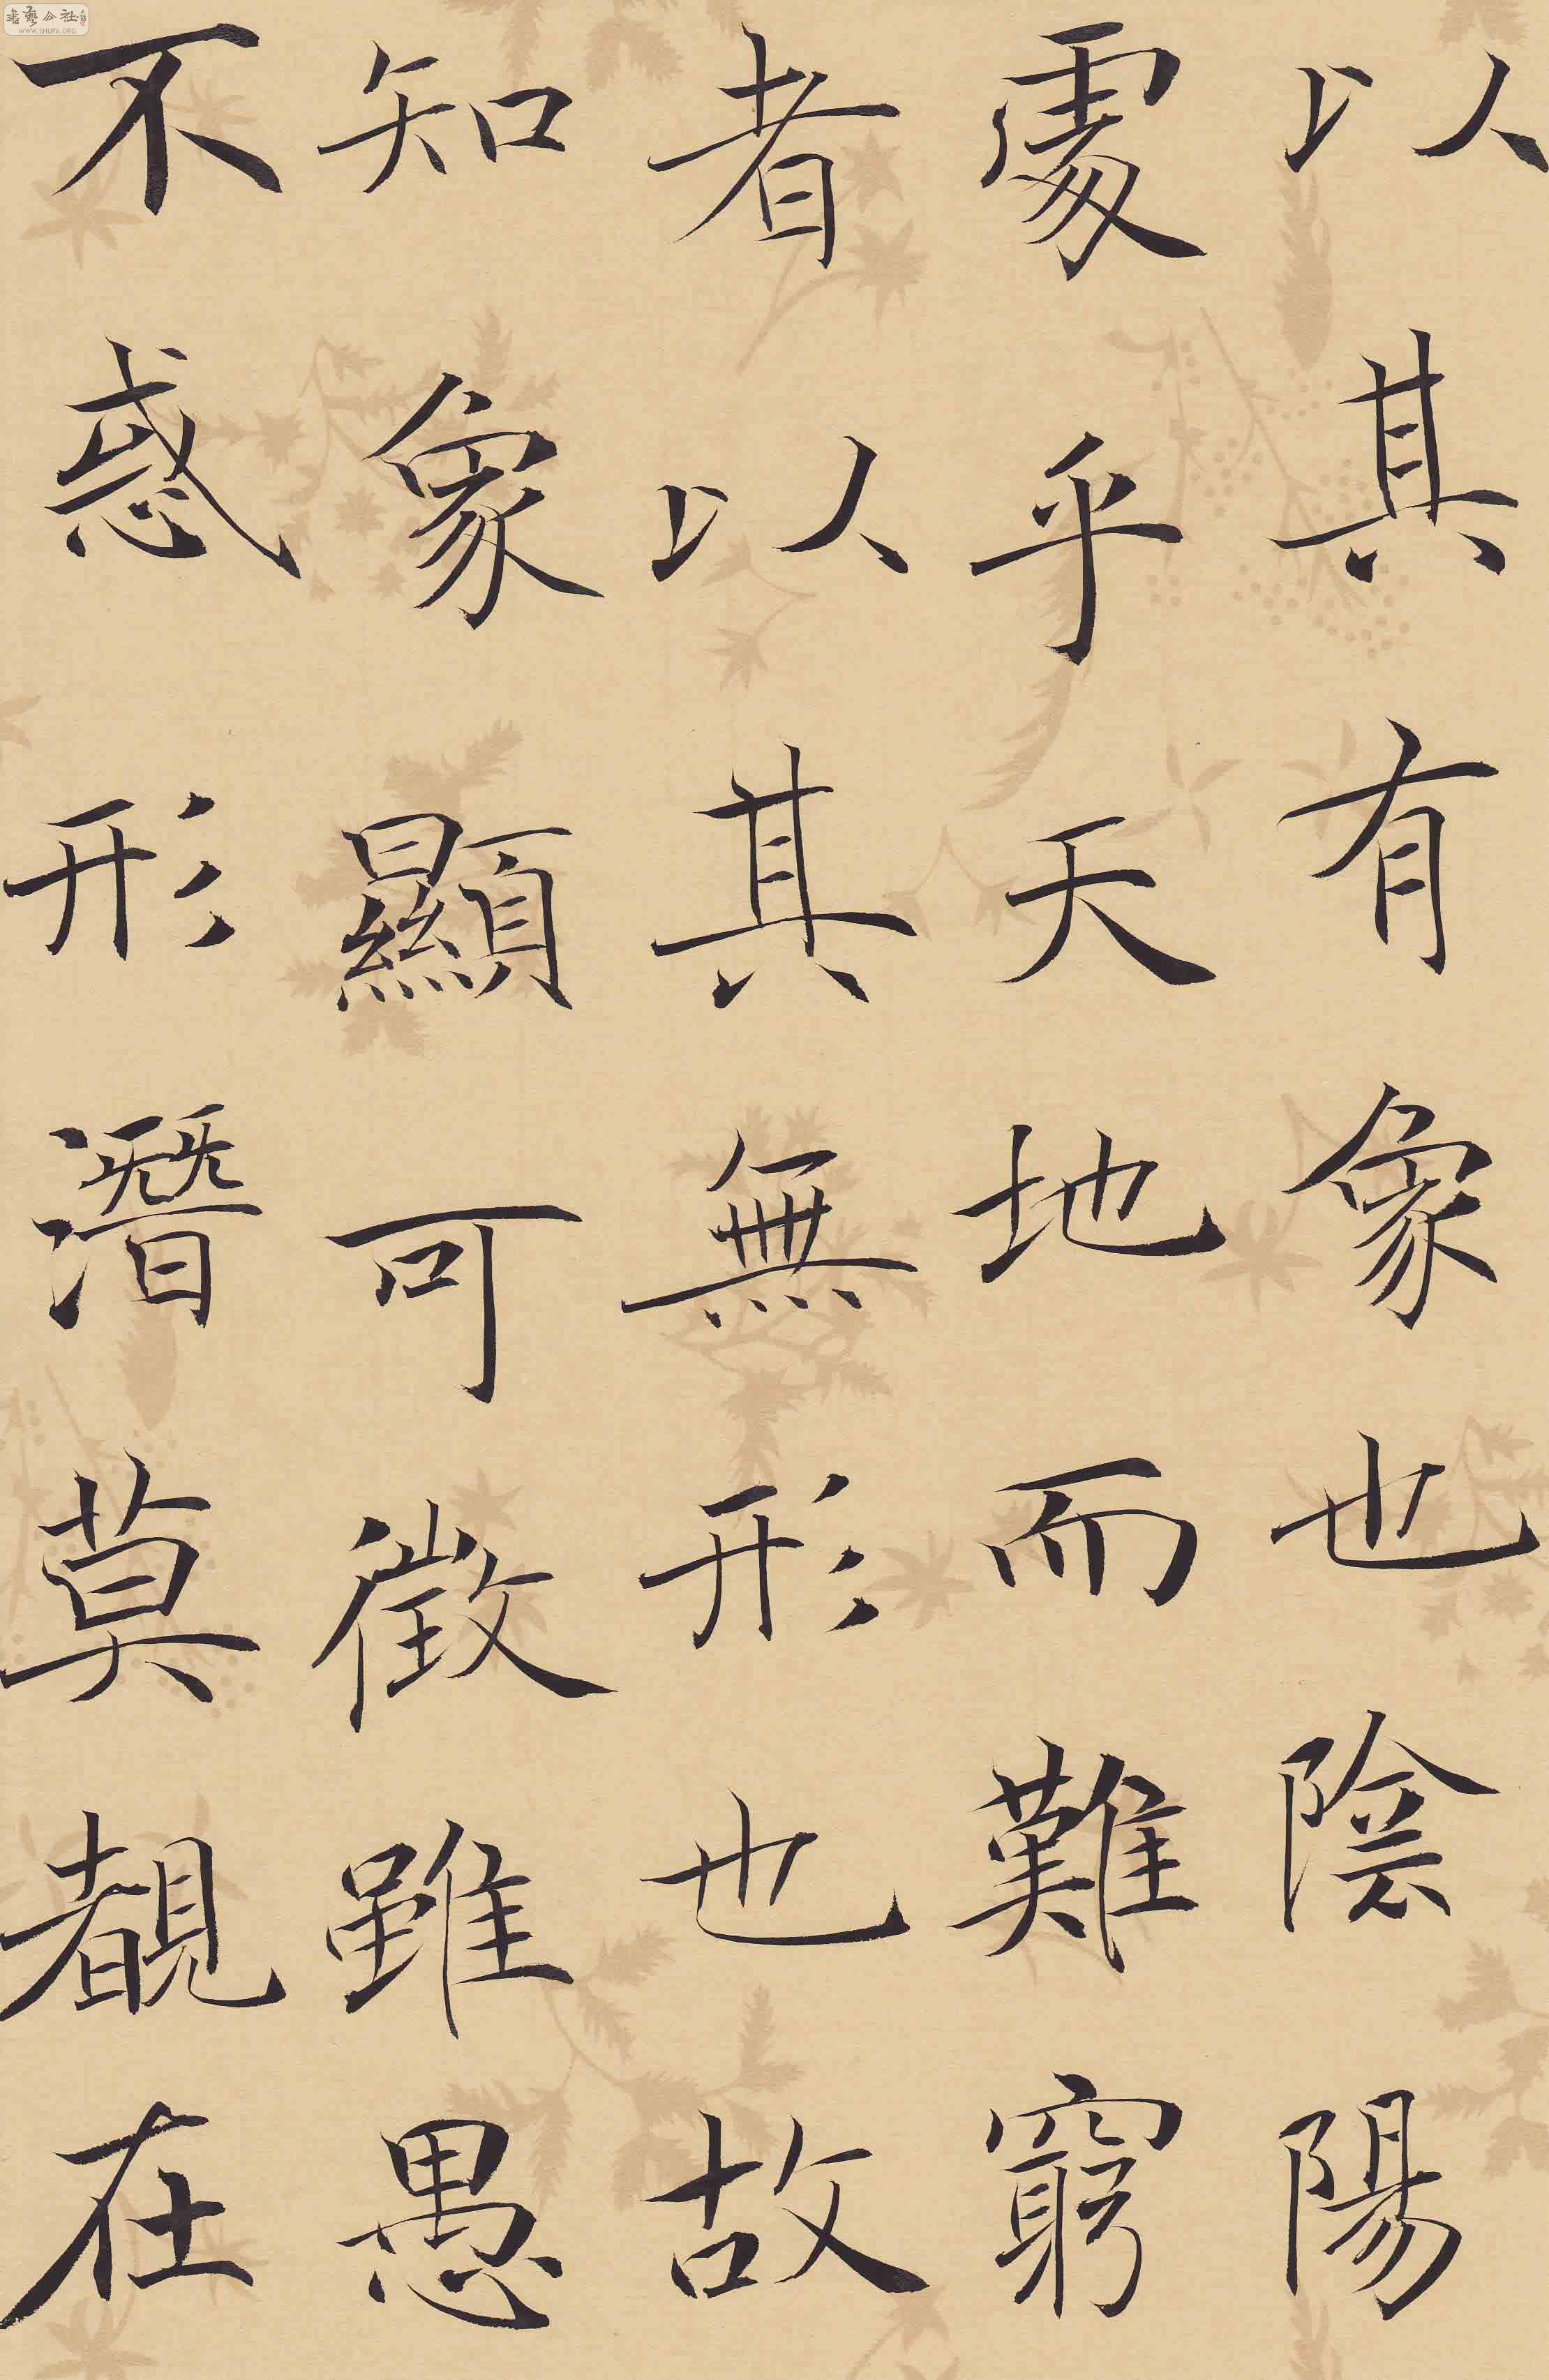 以其有象也陰陽
處乎天地而難窮
者以其無形也故
知象顯可徵雖愚
不惑形潛莫覩在
書藝公社
WWW.SHUFA.ORG